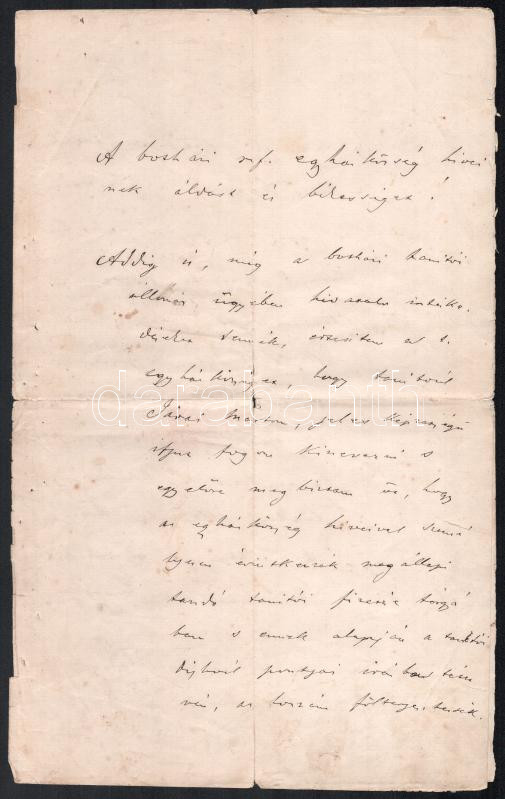 A boskái ref. egyházközség hívei
nek áldást és békességet!
Addig is, míg a boskái tanítói
állomás ügyében hivatalos intéz
désem, értesítem a t.
egyházközséget, hogy tanítóul
Márton, jeles képzettségű
ifjut fogom kinevezni s
egyelőre megbíztam őt, hogy
az egyházközség híveivel szemé
lyesen érintkezzék megállapí
tandó tanítói fizetés tárgyá
ban s ennek alapján a tanítói
díjlevél pontjai írásban
az hozzám fölterjesztessék.
darabanth